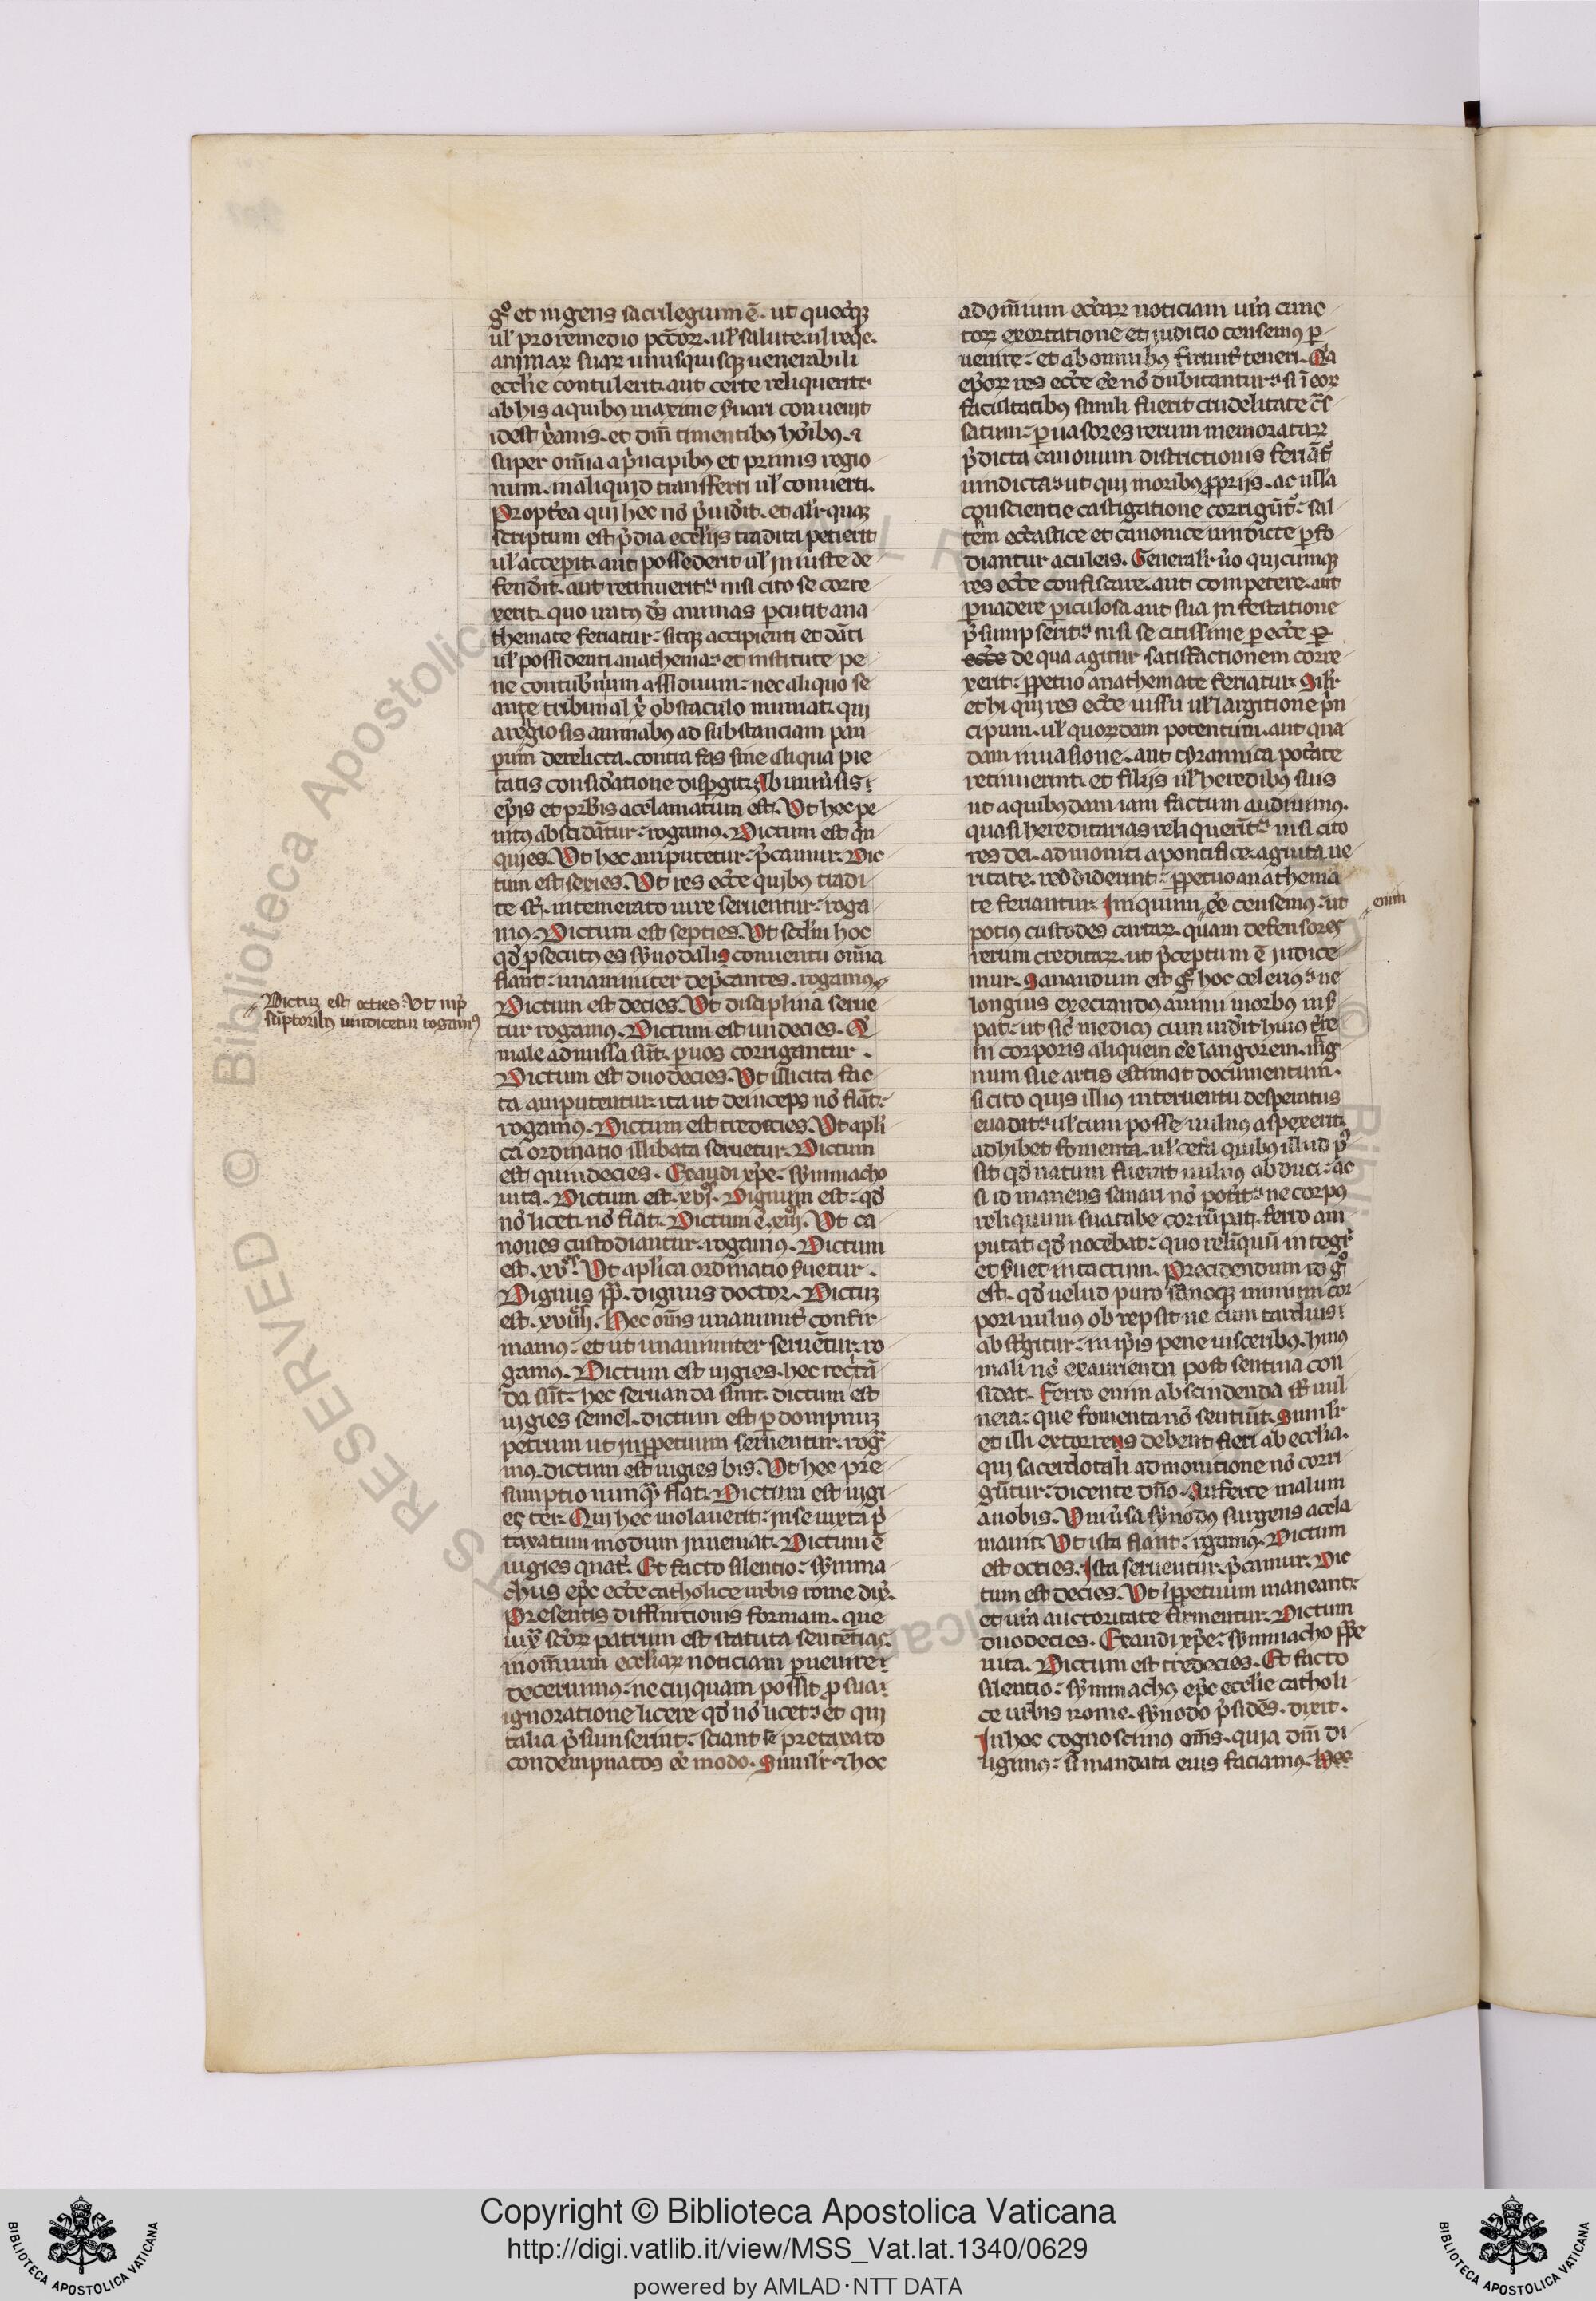 gͦ et ingens sacrilegium ē. ut quecūqꝫ
ul̓ pro remedio pcc̄oꝝ. ul̓ salute. ul̓ reqe.
animaꝝ suaꝝ unusquisqꝫ uenerabili
eccl̓ie contulerit. aut certe reliquerit.
ab his a quibꝰ maxime s̓uari conuenit
id est xp̄anis. et dm̄ timentibꝰ ho͞ibꝰ. ⁊
super om̄ia a pͥncipibꝰ et primis regio
num. in aliquid transferri ul̓ conuerti.
Propt̓ea qui hec no᷒ pͥuid̓it. et alit̓ quaꝫ
scriptum est p̓dia eccl̓iis tradita petierit
ul̓ acceperit. aut possederit ul̓ iniuste de
fend̓it. aut retinuerit: nisi cito se corre
xerit. quo iratꝰ d̄s animas ꝑcutit ana
themate feriatur: sitqꝫ accipienti et dāti
ul̓ possidenti anathema: et institute pe
ne contub̓nium assiduum: nec aliquo se
ante tribunal xp̄i obstaculo muniat. qui
a religiosis animabꝰ ad substanciam pau
ꝑum derelicta. contra fas sine aliqua pie
tatis consid̓atione disꝑgit. Ab uniu̓sis
ep̄is et prb̓is acclamatum est. Ut hec pe
nitꝰ abscidātur: rogamꝰ. Dictum est qͥn
quies. Ut hec amputetur: p̓camur. Dic
tum est sexies. Ut res ecc̄e quibus tradi
te st̄. intemerato iure seruentur: roga
mꝰ. Dictum est septies. Ut scd̓m hoc
qd̓ ꝓsecutꝰ es synodalis conuentu om̄ia
fiant: unanimiter dep̓cantes. rogamꝰ
Dictum est decies. Ut disciplina serue
tur rogamꝰ. Dictum est undecies. Q̓
male admissa sūt. ꝑ uos corrigantur.
Dictum est duodecies. Ut illicita fac
ta amputentur: ita ut deinceps no᷒ fiāt:
rogamꝰ. Dictum est tredecies. Ut apl̓i
ca ordinatio illibata seruetur. Dictum
est quindecies. Exaudi xp̄e. symmacho
uita. Dictum est. xvi. Dignum est: qd̓
no᷒ licet. no᷒ fiat. Dictum ē. xiii. Ut ca
nones custodiantur. rogamꝰ. Dictum
est. xv. Ut apl̓ica ordinatio s̓uetur.
Dignus pp̄. dignus doctor. Dictuꝫ
est. xviii. Hec om̄s unanimit̓ confir
mamꝰ: et ut unanimiter seruētur: ro
gamꝰ. Dictum est uigies. hec rectrac̄tā
da sūt: hec seruanda sunt. dictum est
uigies semel. dictum est ꝑ dompnuꝫ
petrum ut in ꝑpetuum seruentur. roga
mꝰ. dictum est uigies bis. Ut hec pre
sumptio nunqͣꝫ fiat. Dictum est uigi
es ter. Qui hec uiolauerit: in se iuxta p̓
taxatum modum inueniat. Dictum ē
uigies quat̓. Et facto silentio: symma
chus ep̄c ecc̄e catholice urbis rome dix̓.
Presentis diffinitionis formam. que
iux̄ sc̄oꝝ patrum est statuta sentētias.
in om̄ium eccl̓iaꝝ noticiam ꝑuenire
decernimꝰ: ne cuiquam possit ꝓ sua
ignoratione licere qd̓ no᷒ licet: et qui
talia p̓sumserint: sciant se pretaxato
condempnatos e̓e modo. Similit̓ ⁊ hoc
Dictuꝫ est octies. Ut in p̓
sūptoribꝰ uindicetur rogamꝰ
ad om̄ium ecc̄aꝝ noticiam ur̄a cunc
toꝝ exortatione et iuditio censemꝰ ꝑ
uenire: et ab omnibꝰ firmit̓ teneri. Qͥa
ep̄oꝝ res ecc̄e e̓e no᷒ dubitantur: si ī eoꝝ
facultatibꝰ simili fuerit crudelitate c̄s
satum: ꝑuasores rerum memorataꝝ
p̓dicta canonum districtionis feriāt̓
uindicta: ut qui moribꝰ ꝓpriis. ac ulla
conscientie castigatione corrigūt̓: sal
tem ecc̄astice et canonice uindicte ꝑfo
diantur aculeis. Generalit̓ u̓o quicumqꝫ
res ecc̄e confiscare. aut competere. aut
ꝑuadere ꝑiculosa aut sua infestatione
p̓sumpserit: nisi se citissime ꝑ ecc̄e ꝑ
ecc̄e de qua agitur satisfactionem corre
xerit: ꝑpetuo anathemate feriatur. Silr̓
et hi qui res ecc̄e iussu ul̓ largitione pͥn
cipum. ul̓ quoꝝdam potentum. aut qua
dam inuasione. aut tyrannica potͣate
retinuerint. et filiis ul̓ heredibꝰ suis
ut a quibusdam iam factum audiuimꝰ.
quasi hereditarias reliquerīt: nisi cito
res dei. admoniti a pontifice. agnita ue
ritate. reddiderint: ꝑpetuo anathema
te feriantur. Iniquum e̓e censemꝰ: ut
potiꝰ custodes cartaꝝ. quam defensores
rerum creditaꝝ. ut p̓ceptum ē iudice
mur. Sanandum est gͦ hoc celeriꝰ: ne
longius execrandꝰ animi morbus ins̓
pat: ut sic̓ medicꝰ cum uid̓it huiꝰ t̓re
ni corporis aliquem e̓e langorem. mag
num sue artis estimat documentum.
si cito quis illius interuentu desperatus
euadit: ul̓ cum posse uulnus aspexerit
adhibet fomenta. ul̓ cet̓a quibꝰ illud p̓
sit qd̓ natum fuerat uulnꝰ obduci: ac
si id manens sanari no᷒ pot̓it: ne corpꝰ
reliquum sua tabe corrūpat. ferro am
putat qd̓ nocebat: quo reliquū integr̄
et s̓uet intactum. Precidendum id gͦ
est. qd̓ uelud puro sanoqꝫ nimium cor
pori uulnꝰ obrepsit ne cum tardius
abst̓gitur: in ip̄is pene uisceribꝰ. huiꝰ
mali no᷒ exaurienda post sentina con
sidat. Ferro enim abscindenda st̄ uul
nera: que fomenta no᷒ sentiūt. Similr̓
et illi extorres debent fieri ab eccl̓ia.
qui sacerdotali admonitione no᷒ corri
gūtur: dicente dn̄o. Auferte malum
a uobis. Uniu̓sa synodꝰ surgens accla
mauit. Ut ista fiant: rgamꝰ. Dictum
est octies. Ista seruentur: p̓camur. Dic
tum est decies. Ut ī ꝑpetuum maneant:
et ur̄a auctoritate firmentur. Dictum
duodecies. Exaudi xp̄e: symmacho pp̄e
uita. Dictum est tredecies. Et facto
silentio: symmachꝰ ep̄c eccl̓ie catholi
ce urbis rome. synodo p̓sidēs. dixit.
In hoc cognoscimꝰ om̄s. quia dm̄ di
ligimꝰ: si mandata eius faciamꝰ. Hec
enim
Copyright © Biblioteca Apostolica Vaticana
http://digi.vatlib.it/view/MSS_Vat.lat.1340/0629
powered by AMLAD·NTT DATA
BIBLIOTECA APOSTOLICA VATICANA
BIBLIOTECA APOSTOLICA VATICANA